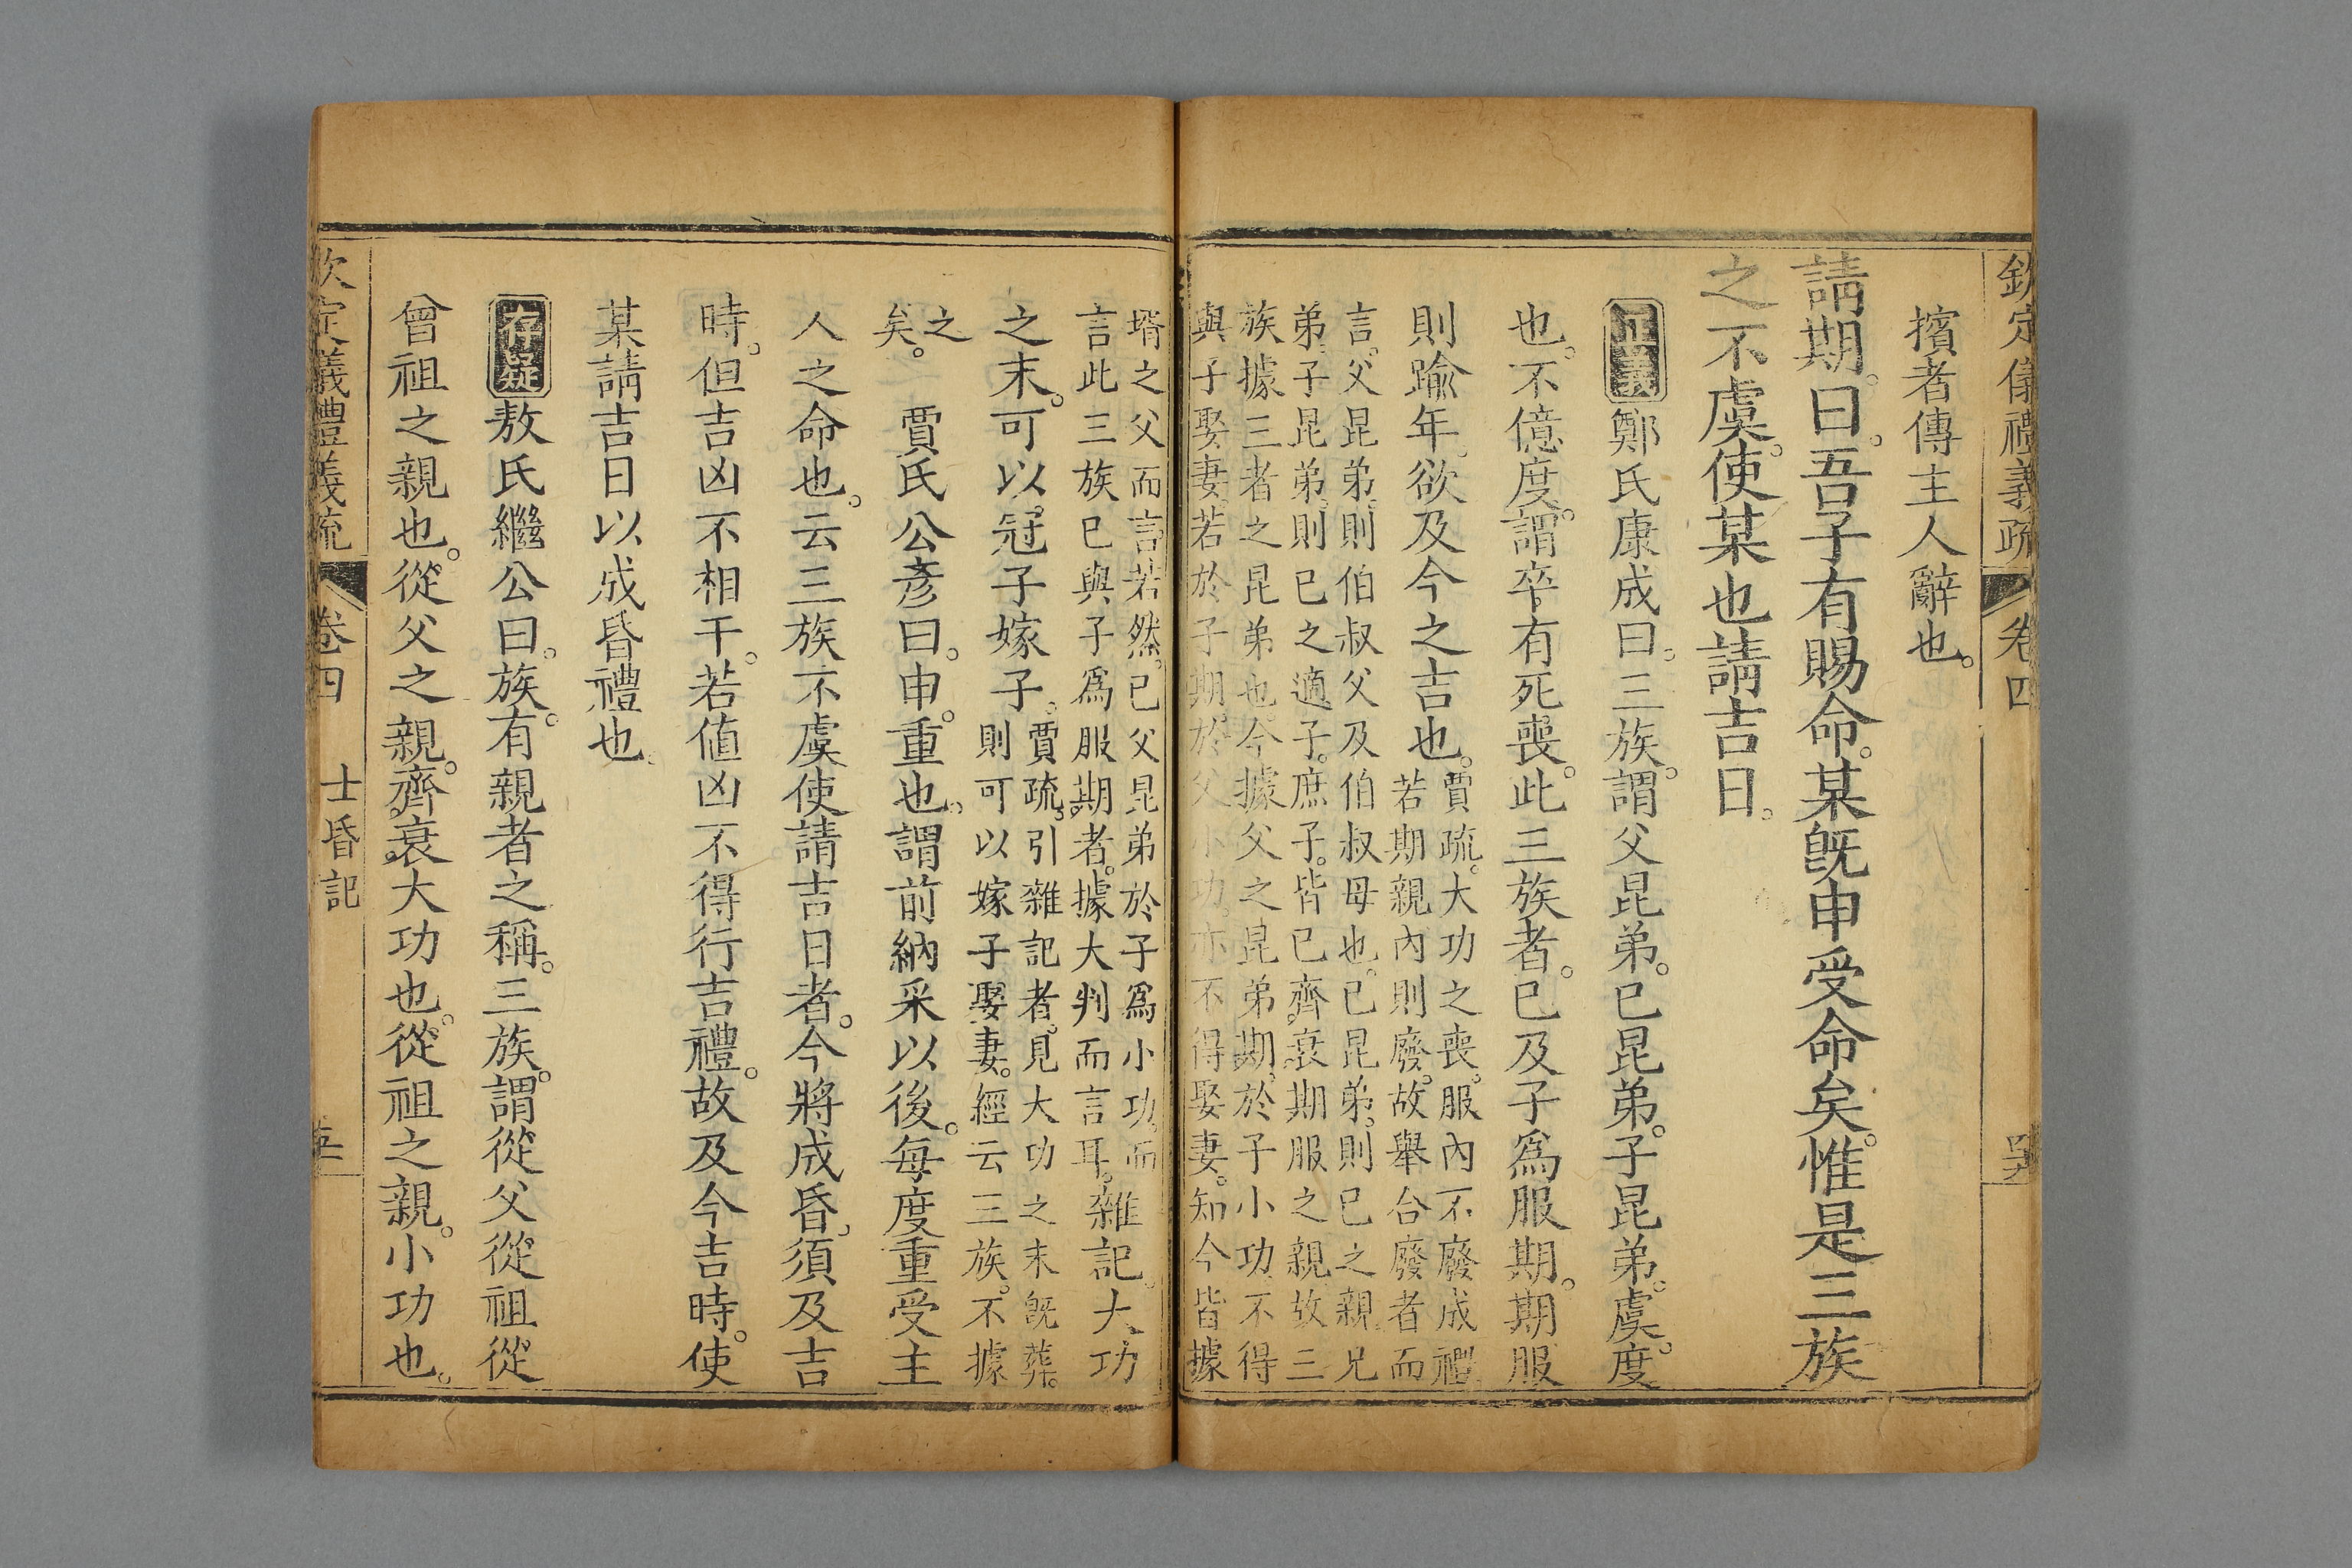 欽定儀禮義疏 卷四
擯者傳主人辭也。
請期。曰。吾子有賜命。某旣申受命矣。惟是三族
之不虞。使某也請吉日。
正義鄭氏康成曰。三族。謂父昆弟。已昆弟。子昆弟。虞。度
也。不億度。謂卒有死喪。此三族者。已及子爲服期。期服
則踰年。欲及今之吉也。賈疏。大功之喪。服內不廢成禮。
若期親內則廢。故舉合廢者而
言。父昆弟。則伯叔父及伯叔母也。已昆弟。則已之親兄
弟。子昆弟。則已之適子。庶子。皆已齊。衰期服之親。故三
族據三者之昆弟也。今據父之昆弟期。於子小功。不得
與子娶妻。若於子期。於父小功。亦不得娶妻。知今皆據
壻之父而言。若然。已父昆弟於子爲小功。而
言此三族已與子爲服期者。據大判而言耳。雜記。大功
之末。可以冠子嫁子。賈疏。引雜記者。見大功之末旣葬。
則可以嫁子娶妻。經云三族。不據
之
矣。
賈氏公彥曰。申。重也。謂前納采以後。每度重受主
人之命也。云三族不虞使請吉日者。今將成昏。須及吉
時。但吉凶不相干。若值凶不得行吉禮。故及今吉時。使
某請吉日以成昏禮也。
存疑敖氏繼公曰。族。有親者之稱。三族。謂從父從祖從
曾祖之親也。從父之親。齊。衰。大功也。從祖之親。小功也。
欽定儀禮義疏 卷四 士昏記